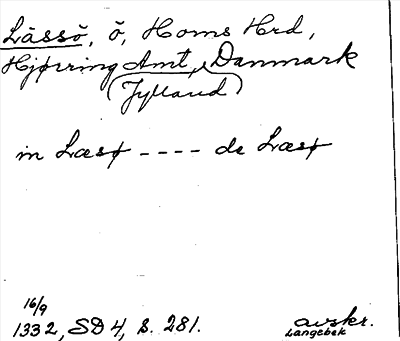 Läsö, ö, Homs Hrd,
Hjørring Amt, Danmark
(Jylland)
in Læsø ---- de Læsø
16/9
1332, SD 4, s. 281.
avskr.
Langebek